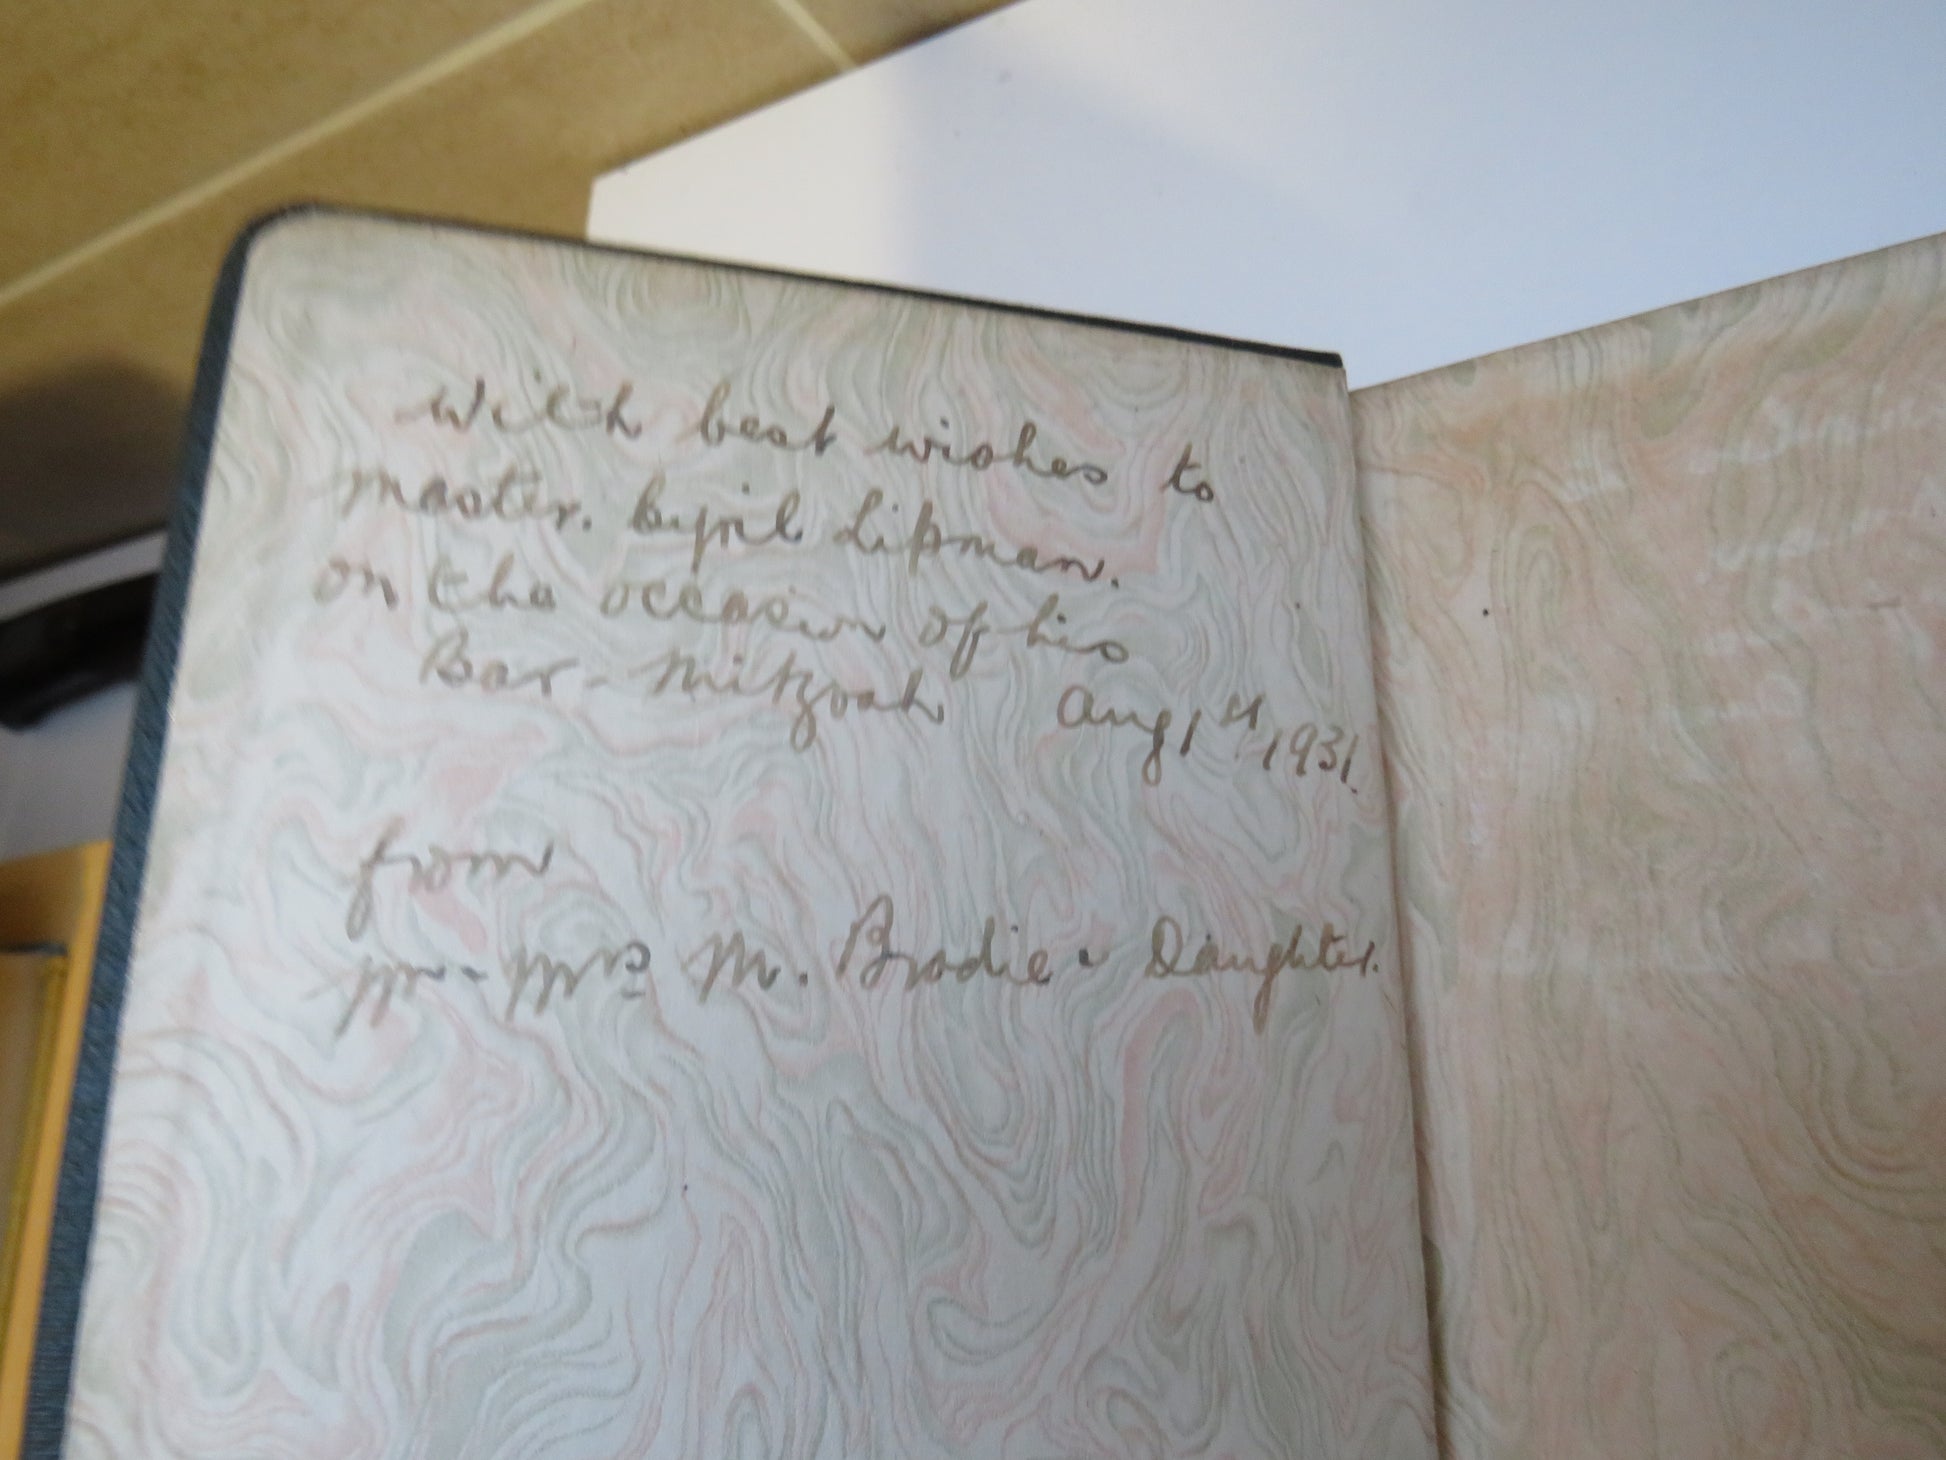 With best wishes to
master. Cyril Lipman.
on the occasion of his
Bar-Mitzvah Aug 1st, 1931.
from
Mr - Mrs M. Brodie & Daughter.